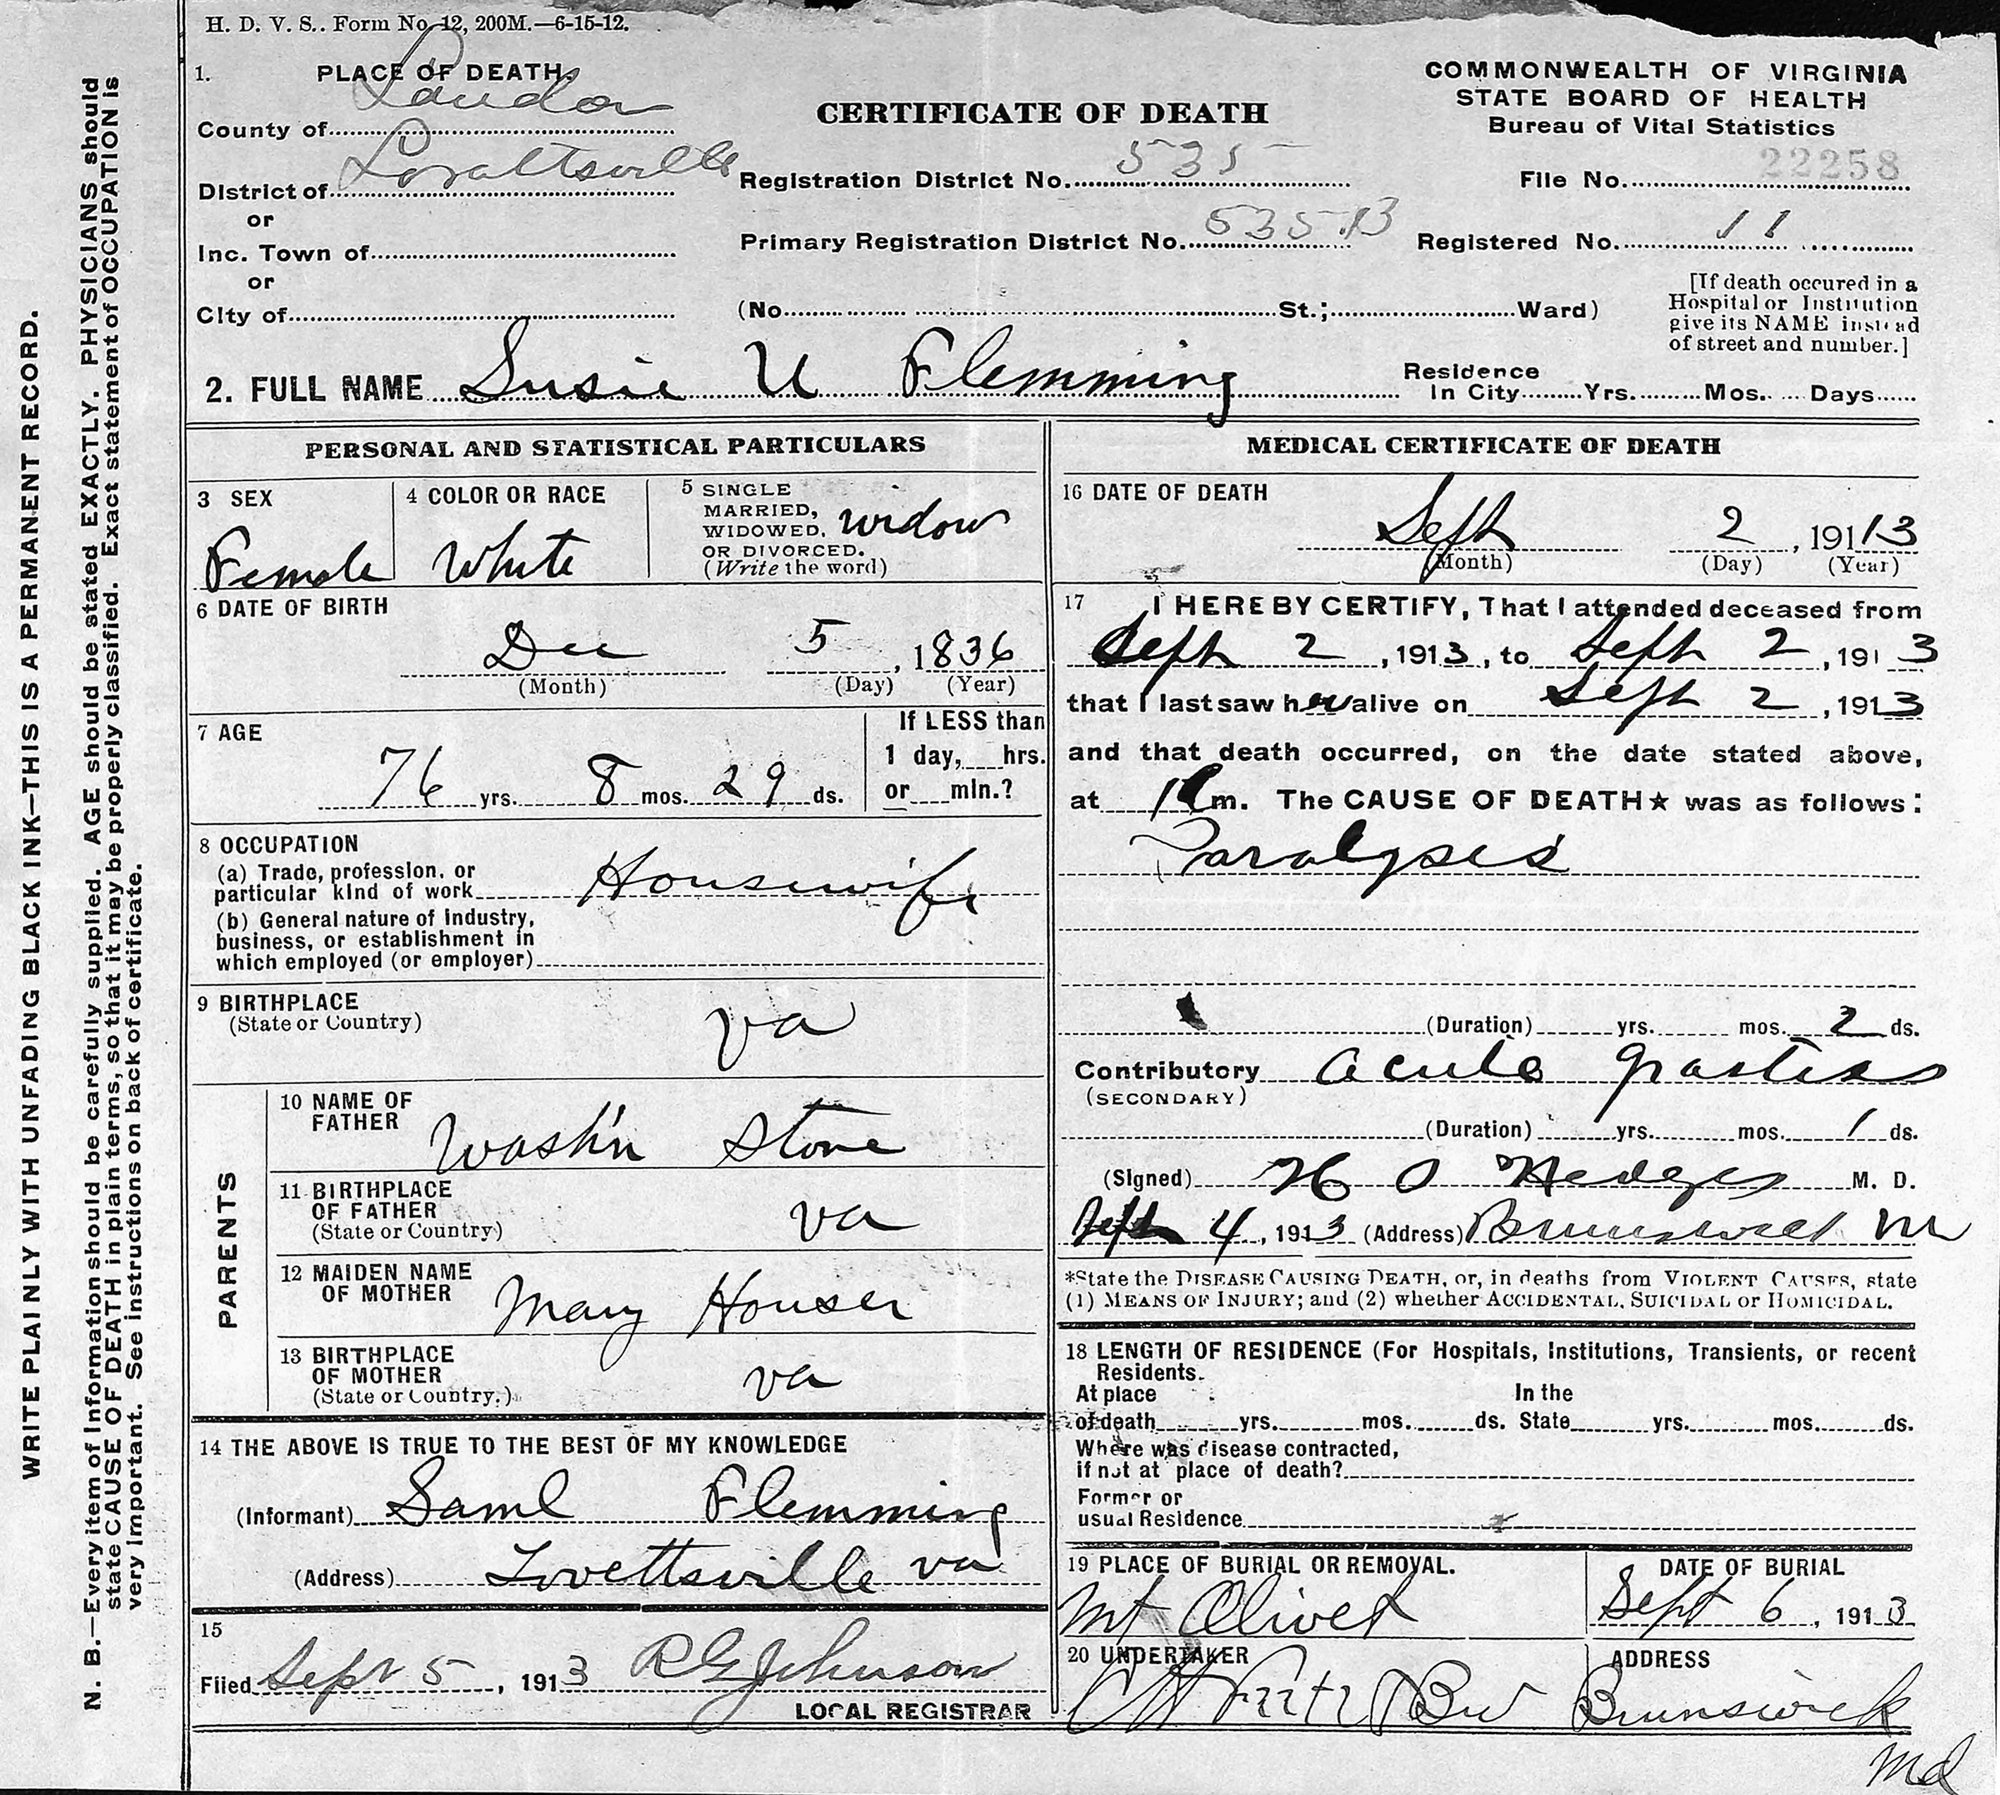 H. D. V. S.. Form No. 12, 200M.—6-15-12.
1. PLACE OF DEATH.
County of Loudon
District of Lovettsville
or
Inc. Town of
or
City of
CERTIFICATE OF DEATH
Registration District No. 535
Primary Registration District No. 53513
(No. St.; Ward)
COMMONWEALTH OF VIRGINIA
STATE BOARD OF HEALTH
Bureau of Vital Statistics
File No. 22258
Registered No. 11
[If death occured in a
Hospital or Institution
give its NAME instead
of street and number.]
2. FULL NAME Susie U Flemming
Residence
In City Yrs. Mos. Days
PERSONAL AND STATISTICAL PARTICULARS
3 SEX
Female
4 COLOR OR RACE
White
5 SINGLE
MARRIED,
WIDOWED,
OR DIVORCED.
(Write the word)
widow
6 DATE OF BIRTH
Dec 5, 1836
(Month) (Day) (Year)
7 AGE
76 yrs. 8 mos. 29 ds.
If LESS than
1 day, hrs.
or min.?
8 OCCUPATION
(a) Trade, profession, or
particular kind of work Housewife
(b) General nature of Industry,
business, or establishment in
which employed (or employer)
9 BIRTHPLACE
(State or Country) va
PARENTS
10 NAME OF
FATHER Wash'n Stone
11 BIRTHPLACE
OF FATHER
(State or Country) va
12 MAIDEN NAME
OF MOTHER Mary Houser
13 BIRTHPLACE
OF MOTHER
(State or Country.) va
14 THE ABOVE IS TRUE TO THE BEST OF MY KNOWLEDGE
(Informant) Saml Flemming
(Address) Lovettsville va
15
Filed Sept 5, 1913 R G Johnson
LOCAL REGISTRAR
MEDICAL CERTIFICATE OF DEATH
16 DATE OF DEATH
Sept 2, 19113
(Month) (Day) (Year)
17 I HEREBY CERTIFY, That I attended deceased from
Sept 2, 1913, to Sept 2, 1913
that I last saw her alive on Sept 2, 1913
and that death occurred, on the date stated above,
at m. The CAUSE OF DEATH★ was as follows:
Paralysis
(Duration) yrs. mos. 2 ds.
Contributory acute
(SECONDARY)
(Duration) yrs. mos. 1 ds.
(Signed) H O Hedges M. D.
Sept 4, 1913 (Address) Brunswick M
*State the DISEASE CAUSING DEATH, or, in deaths from VIOLENT CAUSES, state
(1) MEANS OF INJURY; and (2) whether ACCIDENTAL, SUICIDAL or HOMICIDAL.
18 LENGTH OF RESIDENCE (For Hospitals, Institutions, Transients, or recent
Residents.
At place In the
of death yrs. mos. ds. State yrs. mos. ds.
Where was disease contracted,
if not at place of death?
Former or
usual Residence
19 PLACE OF BURIAL OR REMOVAL.
Mt Olivet
DATE OF BURIAL
Sept 6, 1913
20 UNDERTAKER
ADDRESS
Brunswick
Md
WRITE PLAINLY WITH UNFADING BLACK INK—THIS IS A PERMANENT RECORD.
N. B.—Every item of Information should be carefully supplied. AGE should be stated EXACTLY. PHYSICIANS should
state CAUSE OF DEATH in plain terms, so that it may be properly classified. Exact statement of OCCUPATION is
very Important. See instructions on back of certificate.